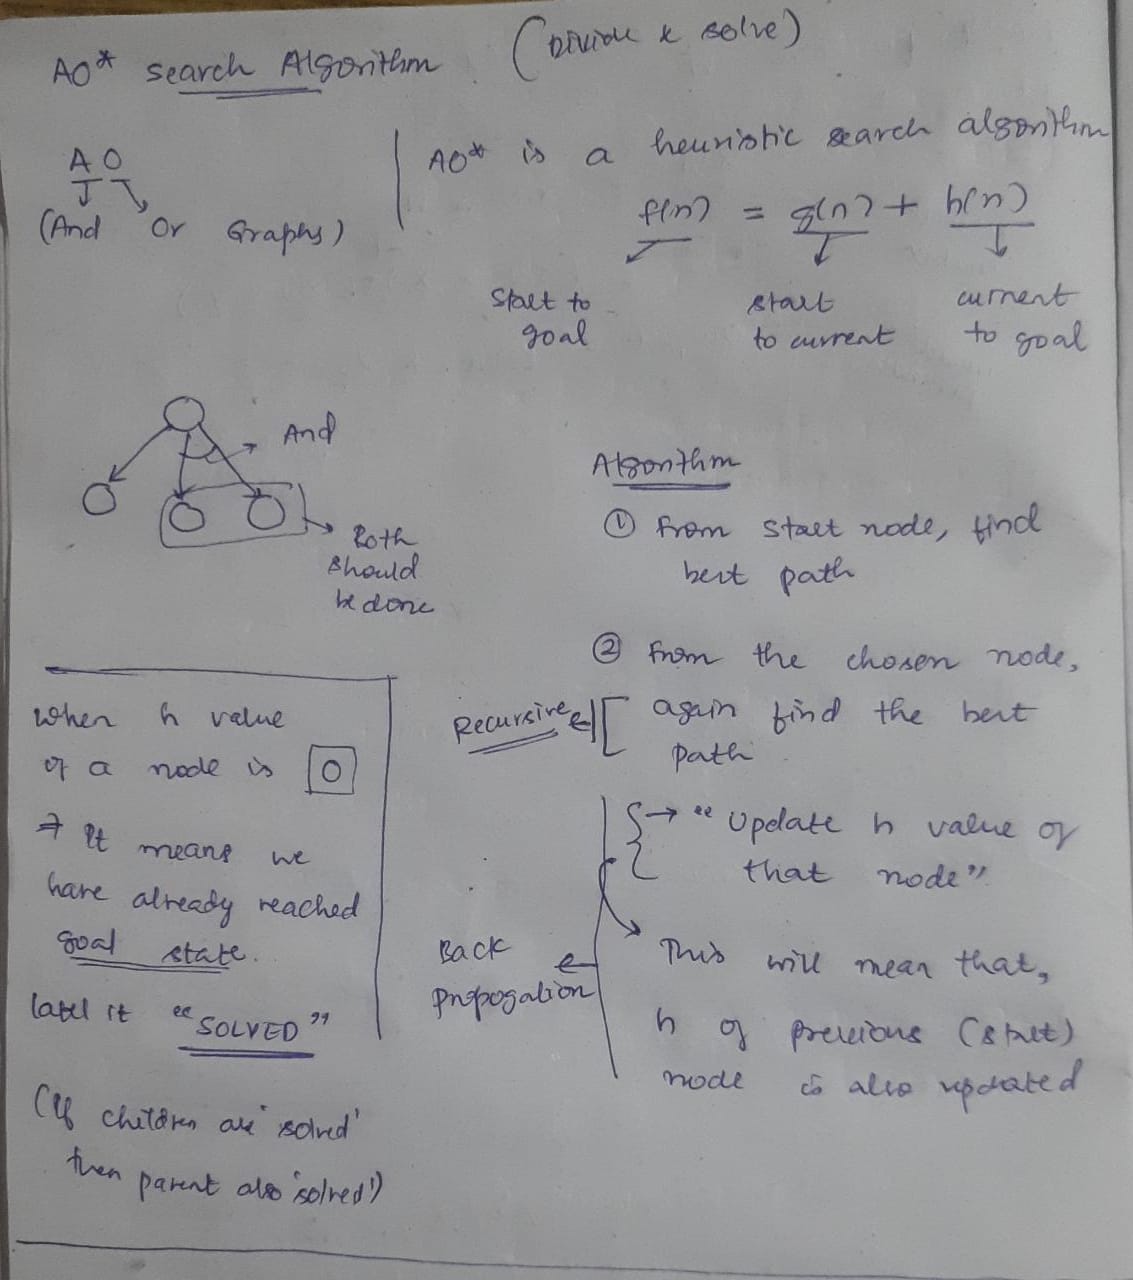 AO* search Algorithm (Divide & solve)
A O
(And Or Graphs)
AO* is a heuristic search algorithm
f(n) = g(n) + h(n)
start to goal
start to current
current to goal
And
Both
should
be done
Algorithm
① From start node, find
best path
② From the chosen node,
again find the best
path
Recursive
→ "Update h value of
that node"
This will mean that,
h of previous (start)
node is also updated
Back
Propogation
when h value
of a node is 0
→ It means we
have already reached
goal state.
label it "SOLVED"
(If children are 'solved'
then parent also 'solved')